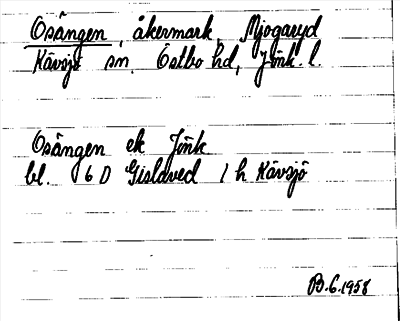 Osängen, åkermark, Mjogaryd
Kävsjö sn, Östbo hd, Jönk. l.
Osängen ek Jönk
bl. 6 D Gislaved 1 h Kävsjö
B.G. 1958